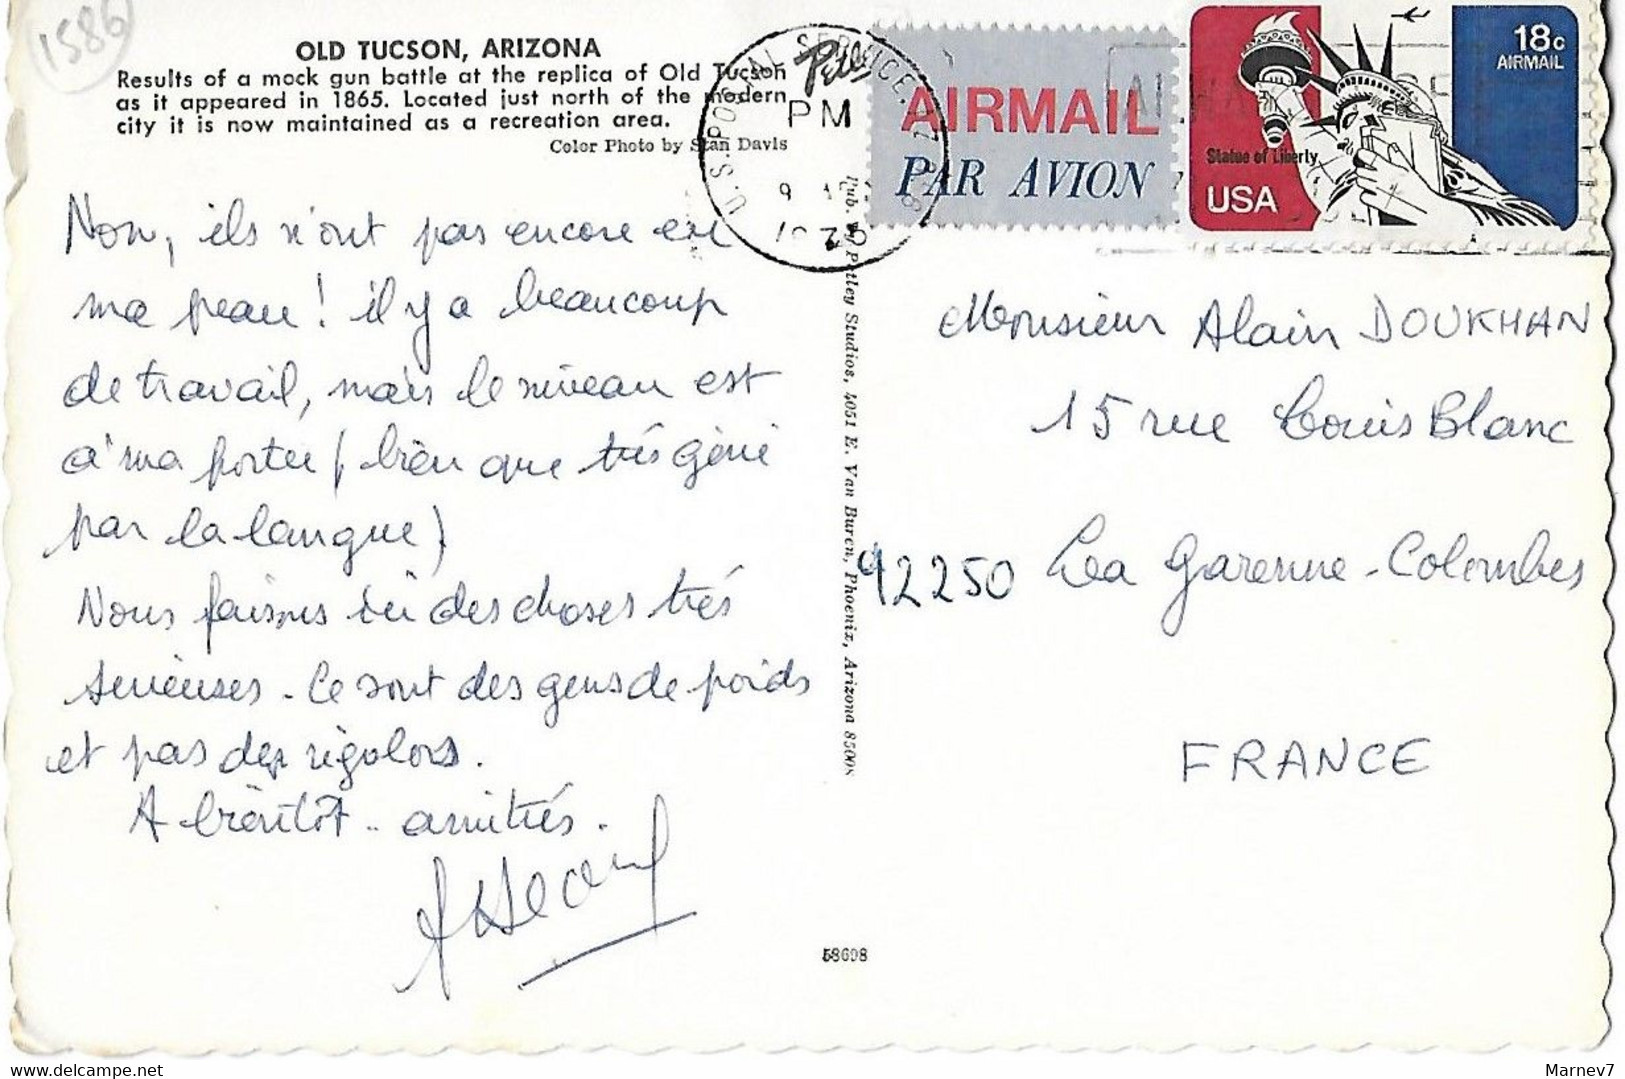 1586
OLD TUCSON, ARIZONA
Results of a mock gun battle at the replica of Old Tucson
as it appeared in 1865. Located just north of the modern
city it is now maintained as a recreation area.
Color Photo by Stan Davis
Non, ils n'ont pas encore eu
ma peau ! il y a beaucoup
de travail, mais le niveau est
à ma portée (bien que très gêné
par la langue)
Nous faisons ici des choses très
sérieuses - Ce sont des gens de poids
et pas des rigolos.
A bientôt .. amitiés.
Pub. by Petley Studios, 4051 E. Van Buren, Phoenix, Arizona 85008
58698
U.S. POSTAL SERVICE
PM
Petley
AIRMAIL
PAR AVION
18c
AIRMAIL
Statue of Liberty
USA
Monsieur Alain DOUKHAN
15 rue Louis Blanc
92250 La Garenne-Colombes
FRANCE
Marnev7